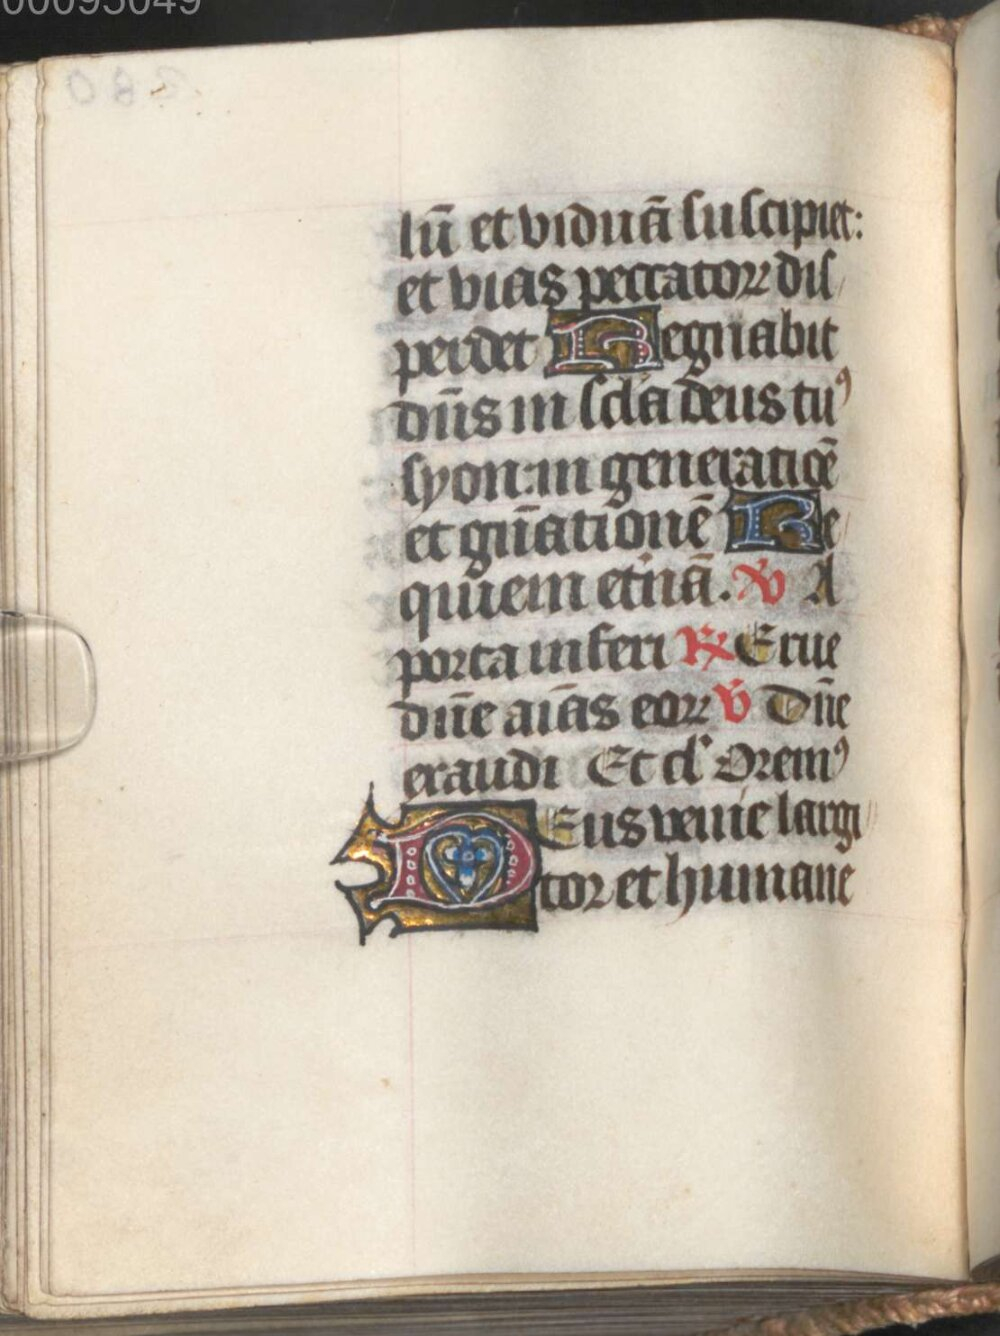 00095049
lū et viduā suscipiet:
et vias peccatoꝝ dis
perdet Regnabit
dñs in scl̃a deus tuꝰ
syon: in generatiōe
et gñationē Re
quiem et̃nā. ℣ A
porta inferi ℟ Erue
dñe aīas eoꝝ ℣ Dñe
exaudi Et cl̃ Oremꝰ
Deus venie largi
tor et humane